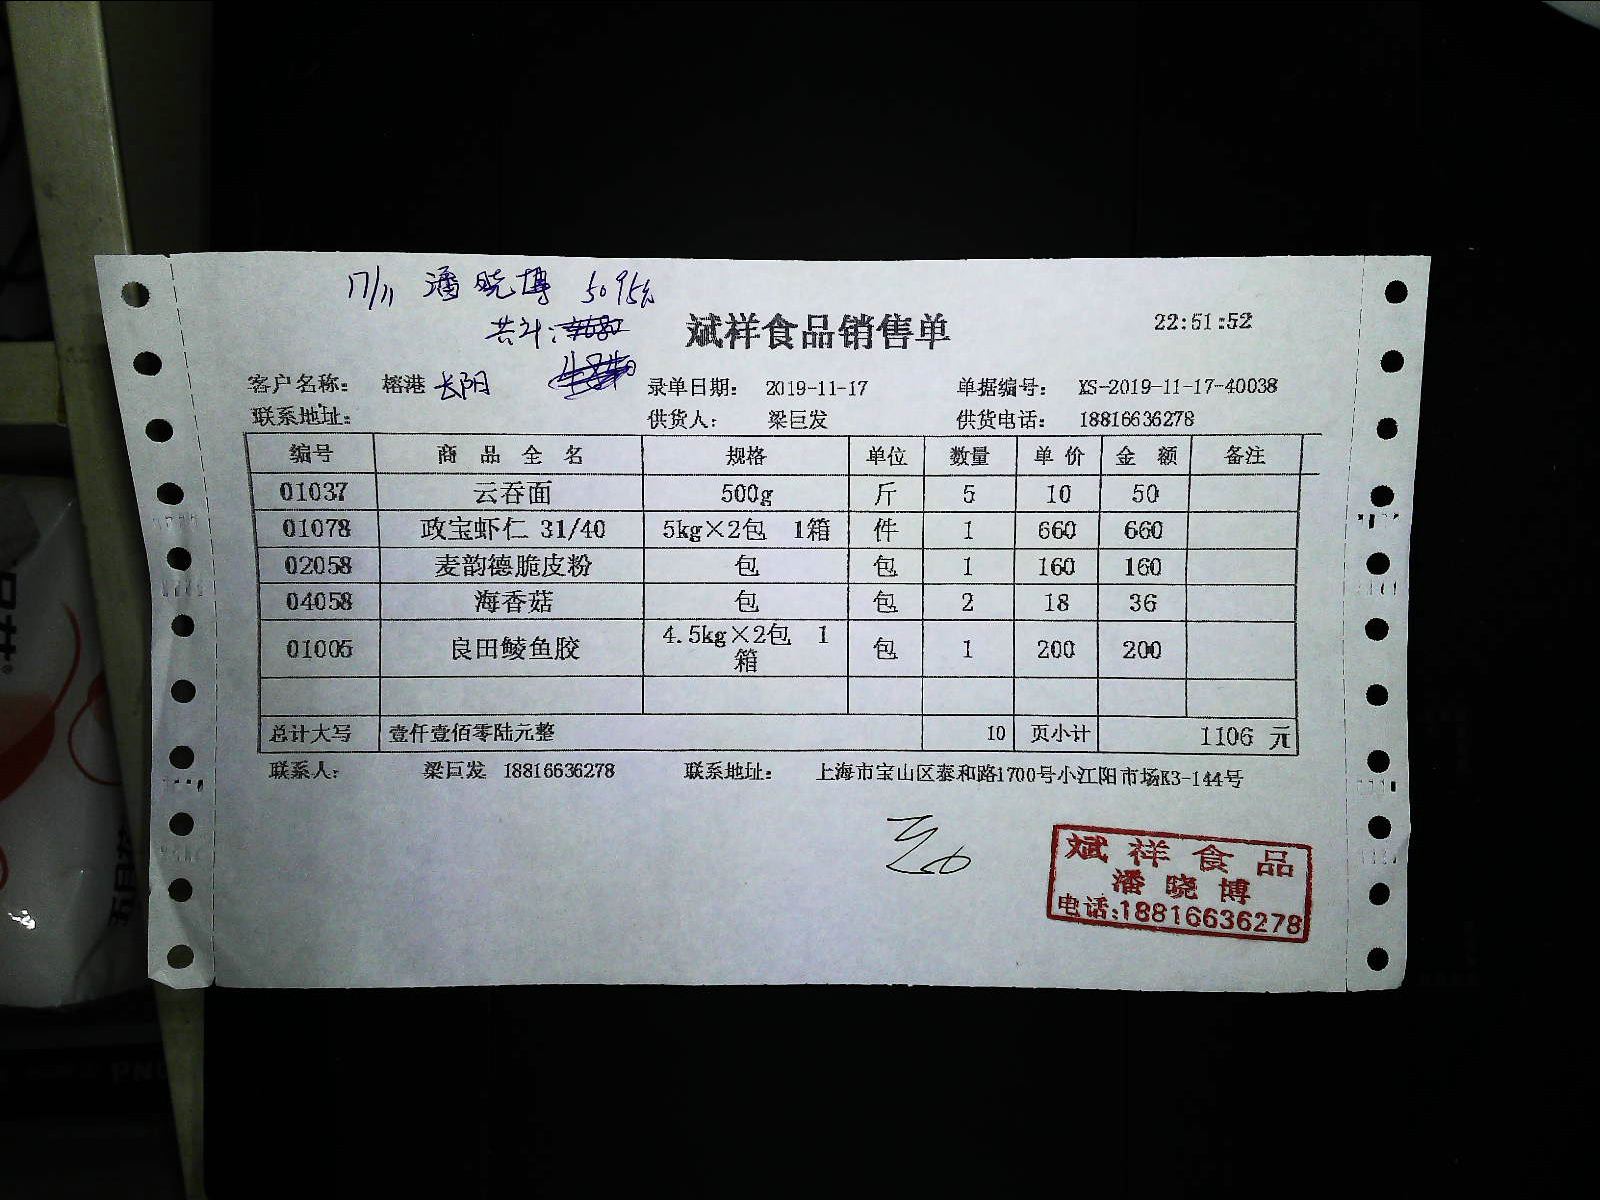 17/11 潘晓博 5095元
共计:
斌祥食品销售单
22:51:52
客户名称: 榕港 长阳 录单日期: 2019-11-17 单据编号: XS-2019-11-17-40038
联系地址: 供货人: 梁巨发 供货电话: 18816636278
编号 商品全名 规格 单位 数量 单价 金额 备注
01037 云吞面 500g 斤 5 10 50
01078 政宝虾仁 31/40 5kg×2包 1箱 件 1 660 660
02058 麦韵德脆皮粉 包 包 1 160 160
04058 海香菇 包 包 2 18 36
01005 良田鲮鱼胶 4.5kg×2包 1箱 包 1 200 200
总计大写 壹仟壹佰零陆元整 10 页小计 1106 元
联系人: 梁巨发 18816636278 联系地址: 上海市宝山区泰和路1700号小江阳市场K3-144号
斌祥食品
潘晓博
电话:18816636278